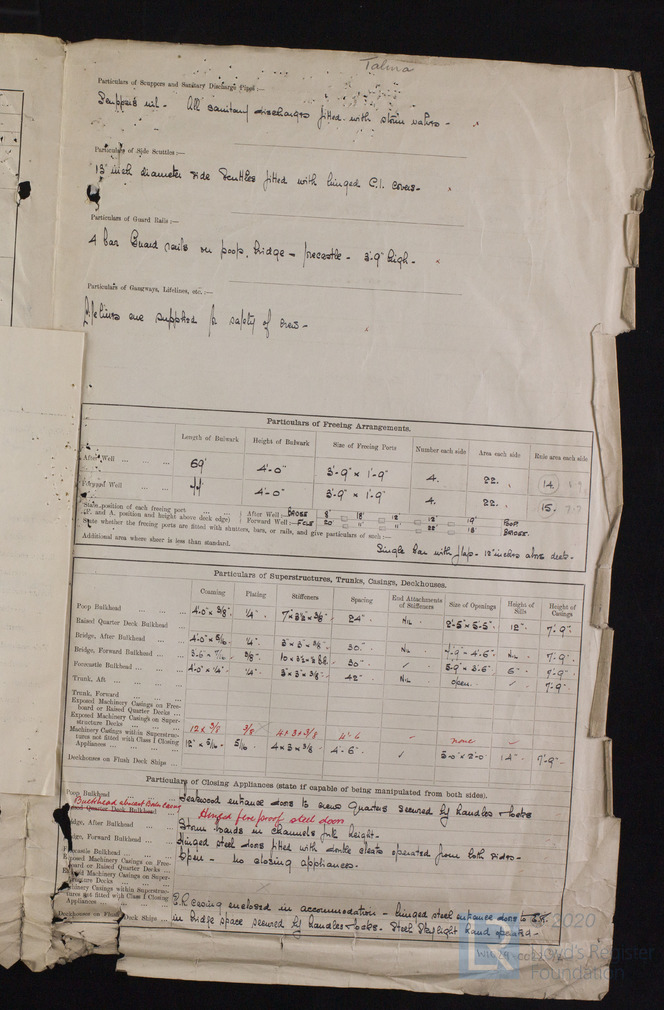 Talma
Particulars of Scuppers and Sanitary Discharge Pipes :—
Scuppers nil - All sanitary discharges fitted with storm valves -
Particulars of Side Scuttles :—
13" inch diameter side scuttles fitted with hinged C.I. covers -
Particulars of Guard Rails :—
4 bar Guard rails on poop, bridge - forecastle - 3'-9" high -
Particulars of Gangways, Lifelines, etc. :—
Lifelines are supplied for safety of crew -
Particulars of Freeing Arrangements.
Length of Bulwark Height of Bulwark Size of Freeing Ports Number each side Area each side Rule area each side
After Well 69' 4'-0" 3'-9" x 1'-9" 4. 22. 14.
Forward Well 4'-0" 3'-9" x 1'-9" 4. 22. 15.
State position of each freeing port After Well :— BRIDGE 8' 18' 12' 12' 19' POOP.
(F. and A. position and height above deck edge) Forward Well :— FCLE 20' " " 22' 18' BRIDGE.
State whether the freeing ports are fitted with shutters, bars, or rails, and give particulars of such :—
Additional area where sheer is less than standard.
Single bar with flap - 12 inches above deck -
Particulars of Superstructures, Trunks, Casings, Deckhouses.
Coaming Plating Stiffeners Spacing End Attachments of Stiffeners Size of Openings Height of Sills Height of Casings
Poop Bulkhead 4'-0" x 3/8" 1/4" 7" x 3½" x 3/8" 24" NIL 2'-5" x 5'-5" 12" 7'-9"
Raised Quarter Deck Bulkhead
Bridge, After Bulkhead 4'-0" x 5/16 1/4" 3" x 3" x 3/8" 30" NIL 4'-6" NIL 7'-9"
Bridge, Forward Bulkhead 3'-6" x 7/16 3/8" 30" ✓ 3'-6" 6" 7'-9"
Forecastle Bulkhead 4'-0" x 1/4" 1/4" 3" x 3" x 3/8" 42" NIL open ✓ 7'-9"
Trunk, Aft
Trunk, Forward
Exposed Machinery Casings on Free-
board or Raised Quarter Decks
Exposed Machinery Casings on Super-
structure Decks 12 x 3/8 3/8 4 x 3 x 3/8 4'-6 ✓ none ✓
Machinery Casings within Superstruc-
tures not fitted with Class I Closing
Appliances 12" x 5/16 5/16 4 x 3 x 3/8 4'-6" ✓ 5'-0" x 2'-0" 14" 7'-9"
Deckhouses on Flush Deck Ships
Particulars of Closing Appliances (state if capable of being manipulated from both sides).
Poop Bulkhead Teakwood entrance doors to crews quarters secured by handles & locks
Bulkhead abreast Boiler Casing Hinged fire proof steel doors
Raised Quarter Deck Bulkhead
Bridge, After Bulkhead Storm boards in channels full height -
Bridge, Forward Bulkhead Hinged steel doors fitted with double cleats operated from both sides -
Forecastle Bulkhead Open - no closing appliances -
Exposed Machinery Casings on Free-
board or Raised Quarter Decks
Exposed Machinery Casings on Super-
structure Decks
Machinery Casings within Superstruc-
tures not fitted with Class I Closing
Appliances E.R. casing enclosed in accommodation - hinged steel entrance doors to E.R.
Deckhouses on Flush Deck Ships in bridge space secured by handles & locks. Steel skylight hand operated -
© 2020
Lloyd's Register
Foundation